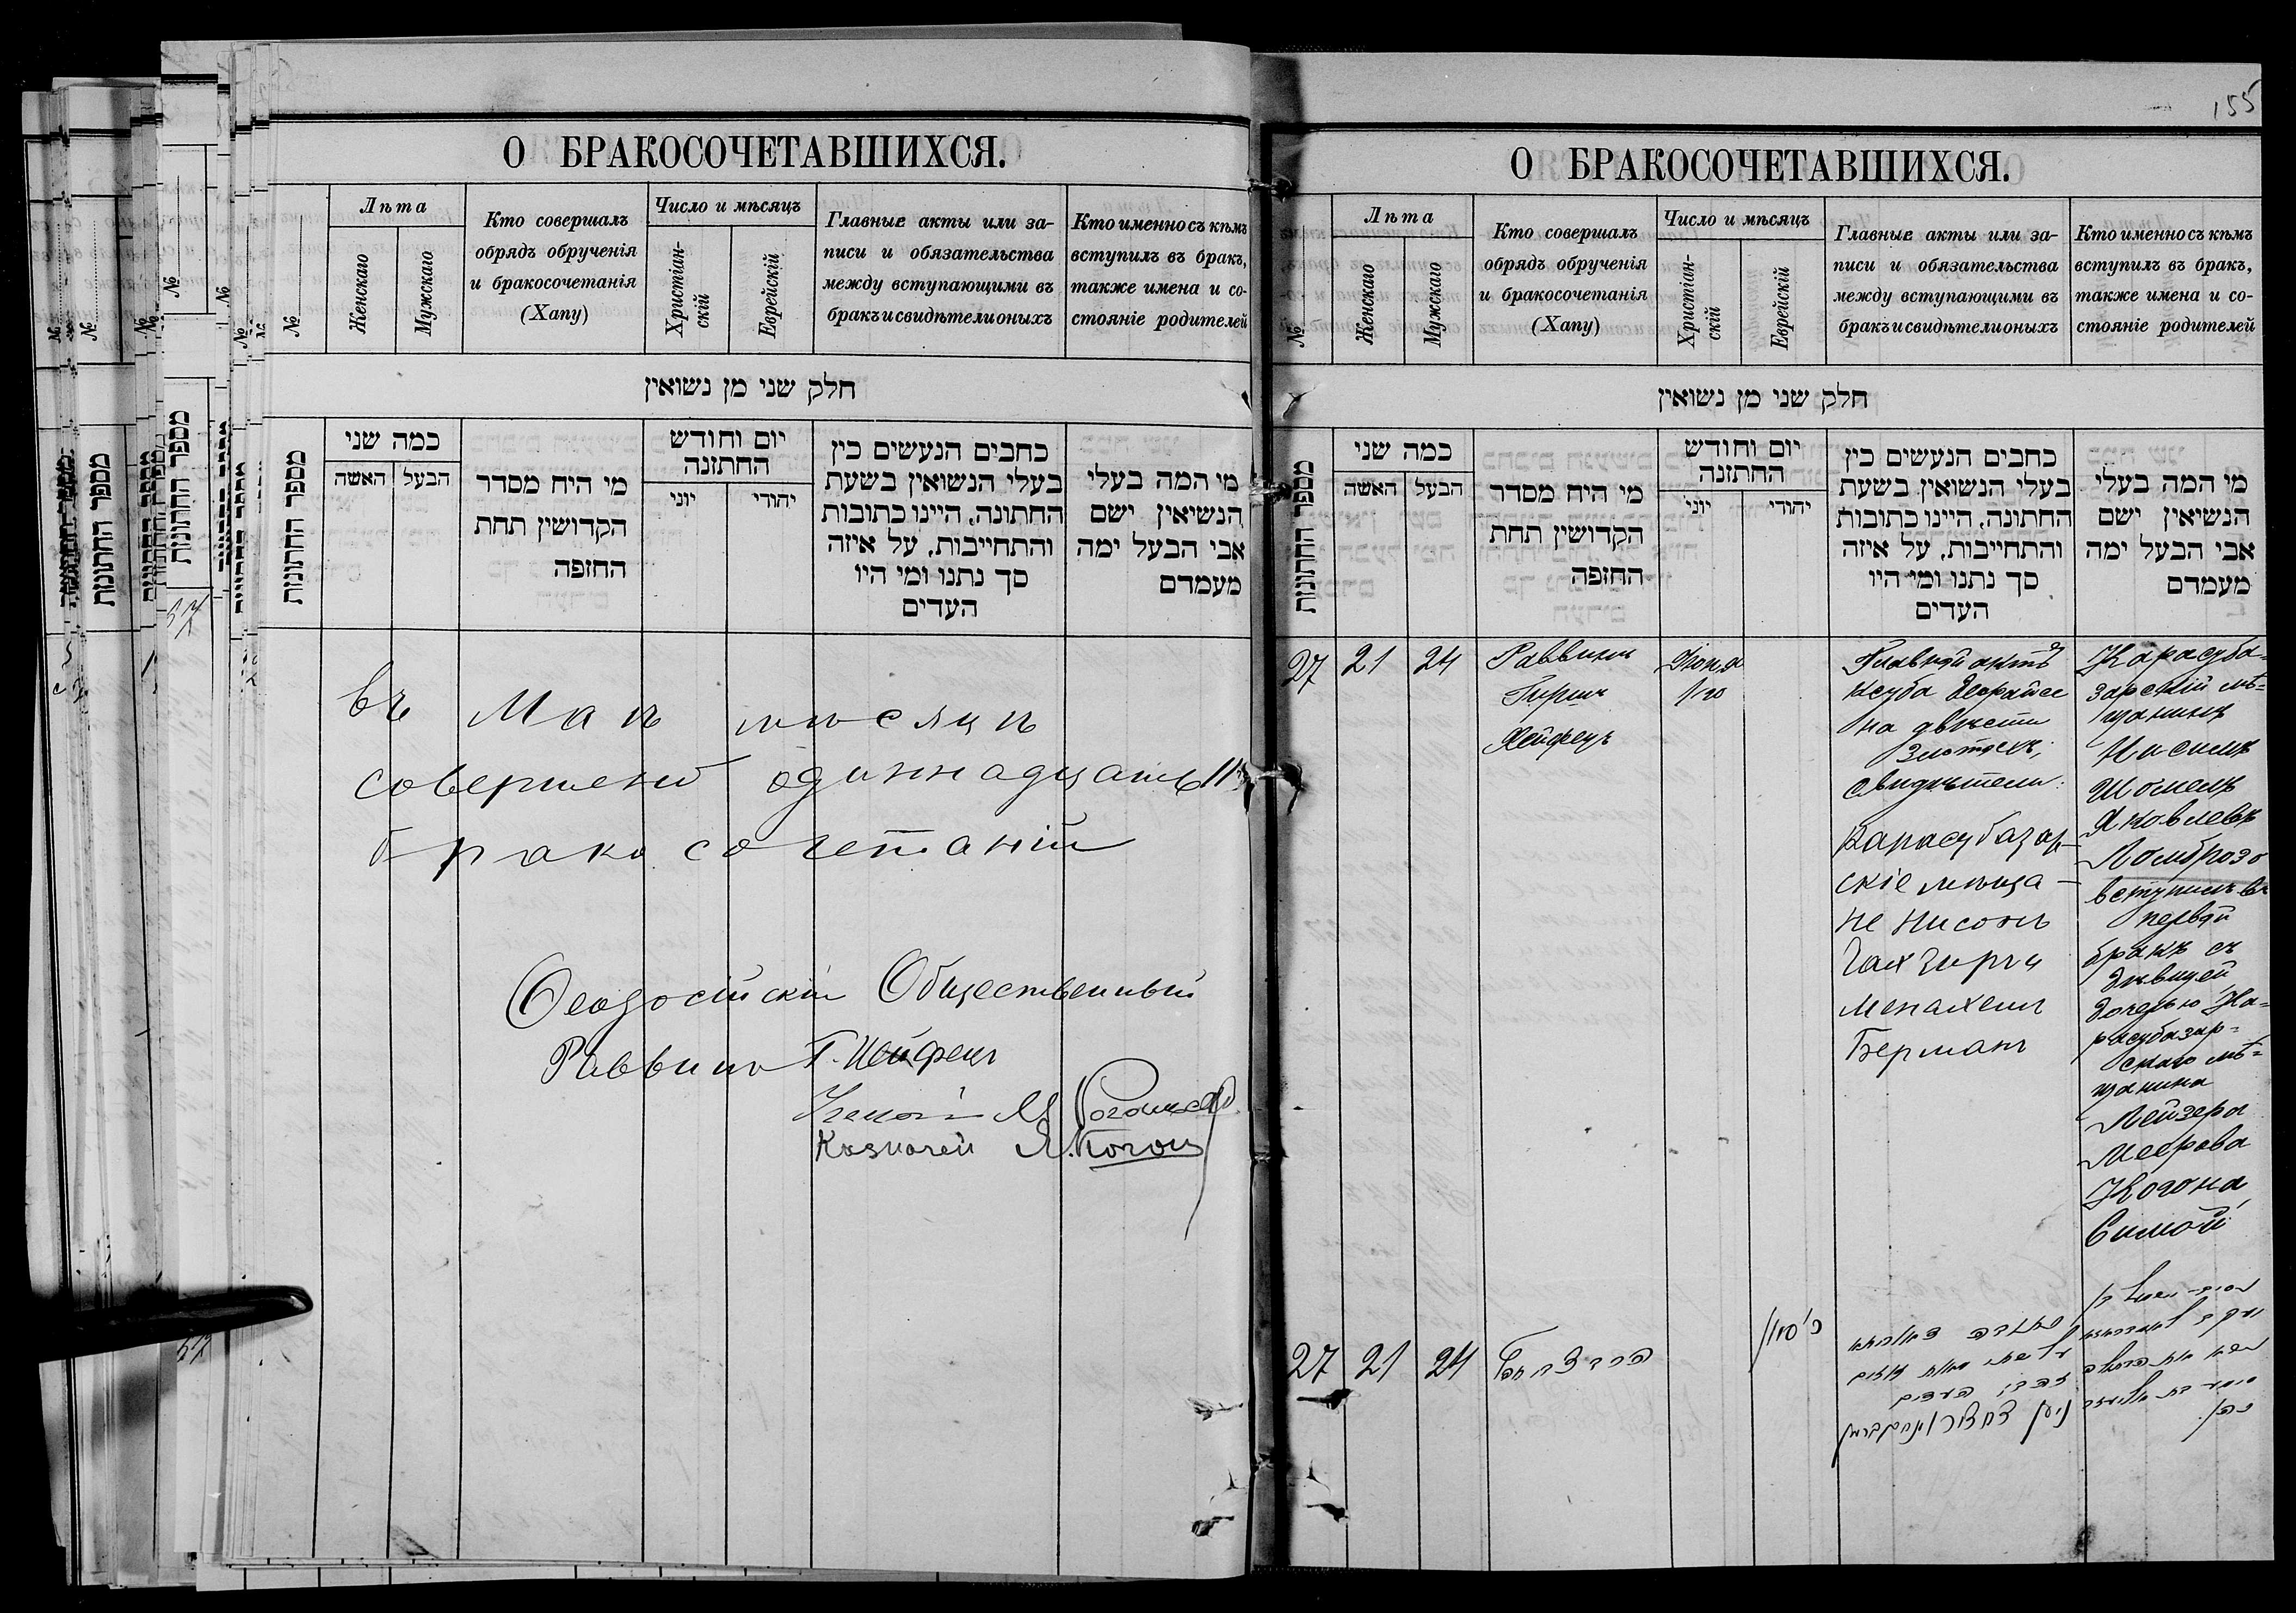 О БРАКОСОЧЕТАВШИХСЯ.
№
Лѣта
Женскаго
Мужскаго
Кто совершалъ
обрядъ обрученія
и бракосочетанія
(Хапу)
Число и мѣсяцъ
Христіан-
скій
Еврейскій
Главные акты или за-
писи и обязательства
между вступающими въ
бракъ и свидѣтели оныхъ
Кто именно съ кѣмъ
вступилъ въ бракъ,
также имена и со-
стояніе родителей
חלק שני מן נשואין
מספר החתונות
כמה שני
הבעל
האשה
מי היח מסדר
הקדושין תחת
החזפה
יום וחודש
החתזנה
יהודי
יוני
כחבים הנעשים כין
בעלי הנשואין בשעת
החתונה, היינו כתובות
והתחייבות, על איזה
סך נתנו ומי היו
העדים
מי המה בעלי
הנשיאין ישם
אבי הבעל ימה
מעמדם
въ Маѣ мѣсяцѣ
совершено одиннадцать 11
бракосочетаній
Ѳеодосійскій Общественный
Раввинъ Г. Хейфецъ
Казначей Я. Когон
155
О БРАКОСОЧЕТАВШИХСЯ.
№
Лѣта
Женскаго
Мужскаго
Кто совершалъ
обрядъ обрученія
и бракосочетанія
(Хапу)
Число и мѣсяцъ
Христіан-
скій
Еврейскій
Главные акты или за-
писи и обязательства
между вступающими въ
бракъ и свидѣтели оныхъ
Кто именно съ кѣмъ
вступилъ въ бракъ,
также имена и со-
стояніе родителей
חלק שני מן נשואין
מספר החתונות
כמה שני
הבעל
האשה
מי היח מסדר
הקדושין תחת
החזפה
יום וחודש
החתזנה
יהודי
יוני
כחבים הנעשים כין
בעלי הנשואין בשעת
החתונה, היינו כתובות
והתחייבות, על איזה
סך נתנו ומי היו
העדים
מי המה בעלי
הנשיאין ישם
אבי הבעל ימה
מעמדם
27
21
24
Раввинъ
Гиршъ
Хейфецъ
Іюня
1го
Главный актъ
Ксуба Деорайсе
на двѣсти
злотехъ;
свидѣтели:
Карасубазар-
скіе мѣща-
не Нисонъ
Менахемъ
Берманъ
Карасуба-
зарскій мѣ-
щанинъ
Нисимъ
Шомель
Яковлевъ
Ломброзо
вступилъ въ
первый
бракъ съ
дѣвицей
дочерью Ка-
расубазар-
скаго мѣ-
щанина
Лейзера
Меерова
Когона
Симой
27
21
24
כ' סיון
כהן